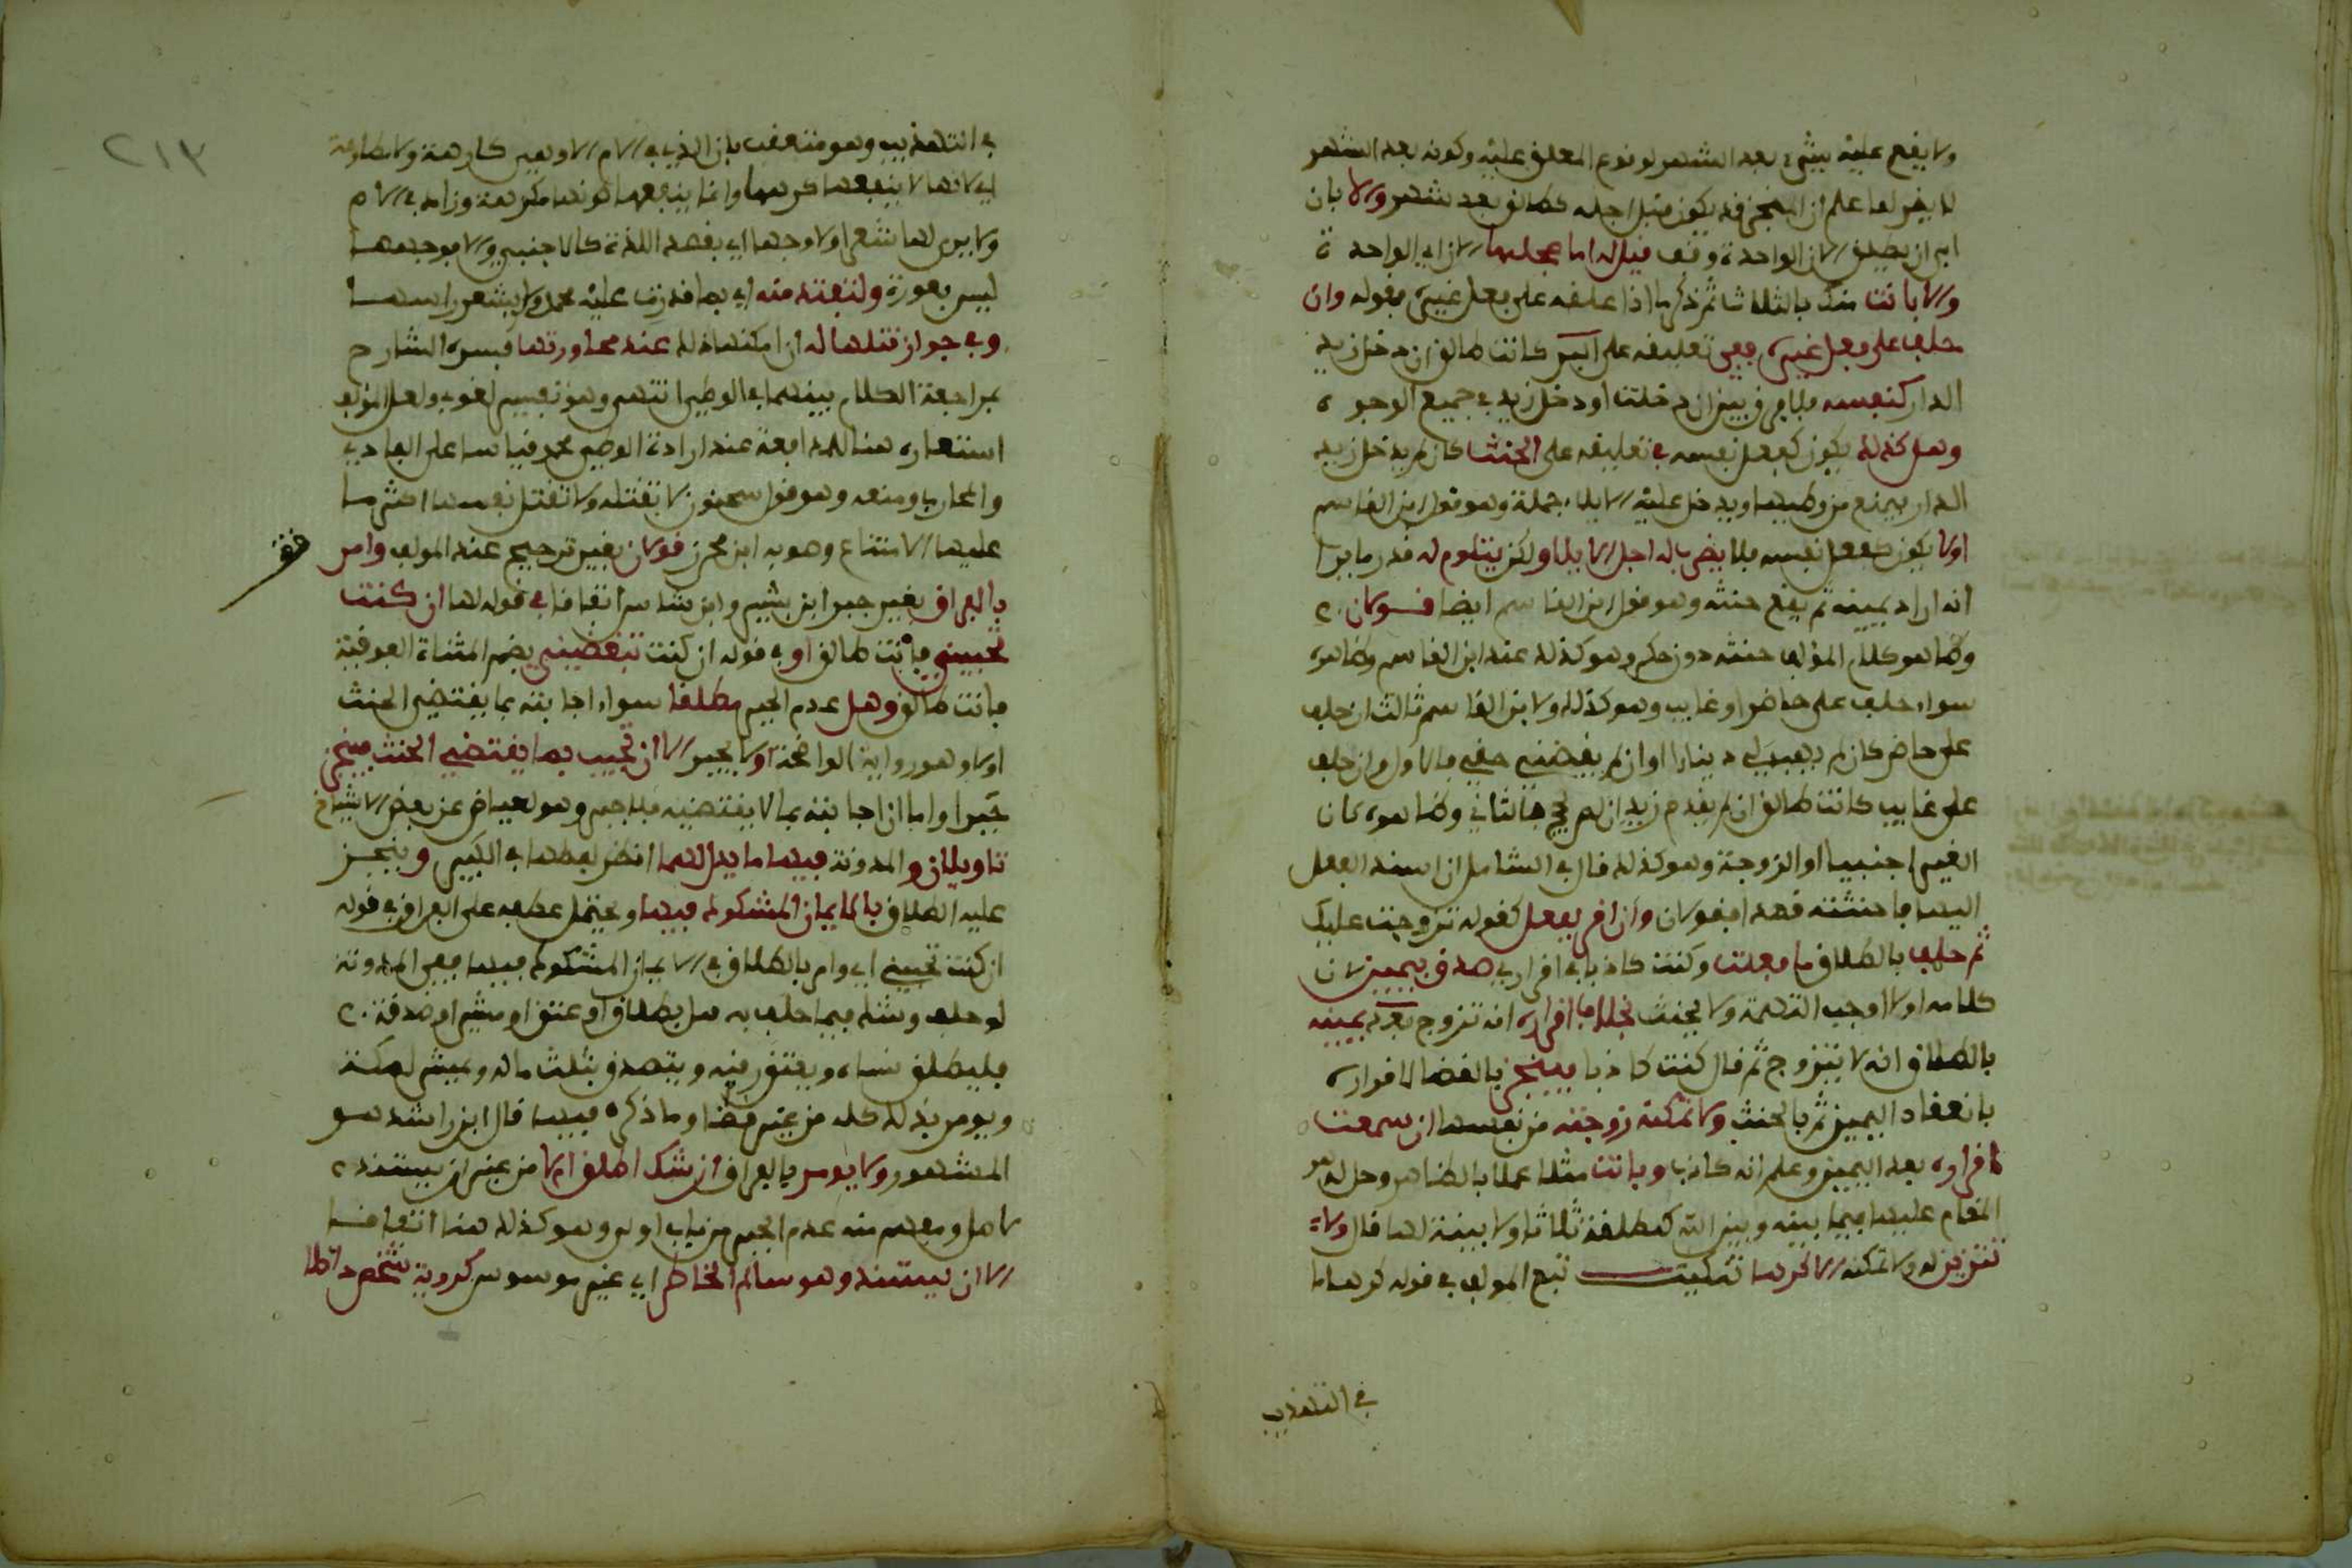 ولا يقع عليه بشيء بعد الشهر لوقوع المعلق عليه وكونه بعد الشهر
ان المنجز قد يكون قبل اجله كطالق بعد شهر والا بان
ابى ان يطلق الان الواحدة وقف قيل له اما عجلها الان اي الواحدة
والا بانت منك بالثلاث ثم ذكر ما اذا علقه على فعل غيره بقوله وان
حلف على فعل غيره ففي تعليقه على البر كانت طالق ان دخل زيد
الدار كنفسه فلا فرق بين ان دخلت او دخل زيد في جميع الوجوه
وهل كذلك يكون كفعل نفسه في تعليقه على الحنث كان لم يدخل زيد
الدار فيمنع من وطيها ويدخل عليه الايلاء جملة وهو قول ابن القاسم
اولا يكون كفعل نفسه فلا يضرب له اجل الايلا ولكن يتلوم له قدر ما يرا
انه اراد بيمينه ثم يقع حنثه وهو قول ابن القاسم ايضا قولان
وظاهر كلام المؤلف حنثه دون حكم وهو كذلك عند ابن القاسم وظاهره
سواء حلف على حاضر او غايب وهو كذلك ولابن القاسم ثالث ان حلف
على حاضر كان لم يهب لي دينارا او ان لم يقضني حقي فالاول وان حلف
على غايب كانت طالق ان لم يقدم زيد ان لم يحج فالثاني وظاهره كان
الغير اجنبيا او الزوجة وهو كذلك قال في الشامل ان اسند الفعل
اليها فاحنثته فهذا قولان وان اقر بفعل كقوله تزوجت عليك
ثم حلف بالطلاق ما فعلت وكنت كاذبا في اقراري صدق بيمين لان
كلامه اولا اوجب التهمة ولا يحنث بخلاف اقراره انه تزوج بعد يمينه
بالطلاق انه لا يتزوج ثم قال كنت كاذبا فينجز بالقضا لاقراره
بانعقاد اليمين ثم بالحنث ولا تمكنه زوجته من نفسها ان سمعت
اقراره بعد اليمين وعلم انه كاذب وبانت مثلا عملا بالظاهر وحل له هو
المقام عليها فيما بينه وبين الله كمطلقة ثلاثا ولا بينة لها قال ولا
تتزين له ولا تمكنه الا كرها تنكيت تبع المولف في قوله كرها ما
في التهذيب
٢١٣
في التهذيب وهو متعقب بان الذي في الام الا وهي كارهة ولا مطاوعة
اي لانها لا ينفعها كرهها وانما ينفعها كونها مكرهة وزاد في الام
ولا يرى لها شعرا ولا وجها اي بقصد اللذة كالاجنبي والا فوجهها
ليس بعورة ولتفتد منه اي بما قدرت عليه محمد ولو بشعر راسها
وفي جواز قتلها له ان امكنها ذلك عند محاورتها فسره الشارح
بمراجعة الكلام بينهما في الوطي انتهى وهو تفسير لغوي ولعل المؤلف
استعاره هنا للمدافعة عند ارادة الوطي محمد قياسا على العادي
والمحارب ومنعه وهو قول سحنون لا تقتله ولا تقتل نفسها اكثر ما
عليها الامتناع وصوبه ابن محرز قولان بغير ترجيح عند المولف وامر
قف
بالفراق بغير جبر ابن بشير وابن شاس اتفاقا في قوله لها ان كنت
تحبيني فانت طالق او في قوله ان كنت تبغضيني بضم المثناة الفوقية
فانت طالق وهل عدم الجبر مطلقا سواء اجابته بما يقتضي الحنث
اولا وهو رواية الواضحة اولا يجبر الا ان تجيب بما يقتضي الحنث فينجز
جبرا واما ان اجابته بما لا يقتضيه فلا جبر وهو لعياض عن بعض الاشياخ
تاويلان والمدونة فيها ما يدل لهما انظر لفظها في الكبير وينجز
عليه الطلاق بالايمان المشكوك فيها ويحتمل عطفه على الفراق في قوله
ان كنت تحبيني اي وامر بالطلاق في الايمان المشكوك فيها ففي المدونة
لو حلف وشك فيما حلف به هل بطلاق او عتق او مشي او صدقة
فليطلق نساه ويعتق رقيقه ويتصدق بثلث ماله ويمش لمكة
ويومر بذلك كله من غير قضا وما ذكره فيها قال ابن راشد هو
المشهور ولا يومر بالفراق ان شك اطلق ام لا من غير ان يستند
لاصل ويفهم منه عدم الجبر من باب اولى وهو كذلك هنا اتفاقا
الا ان يستند وهو سالم الخاطر اي غير موسوس كروية شخص داخلا